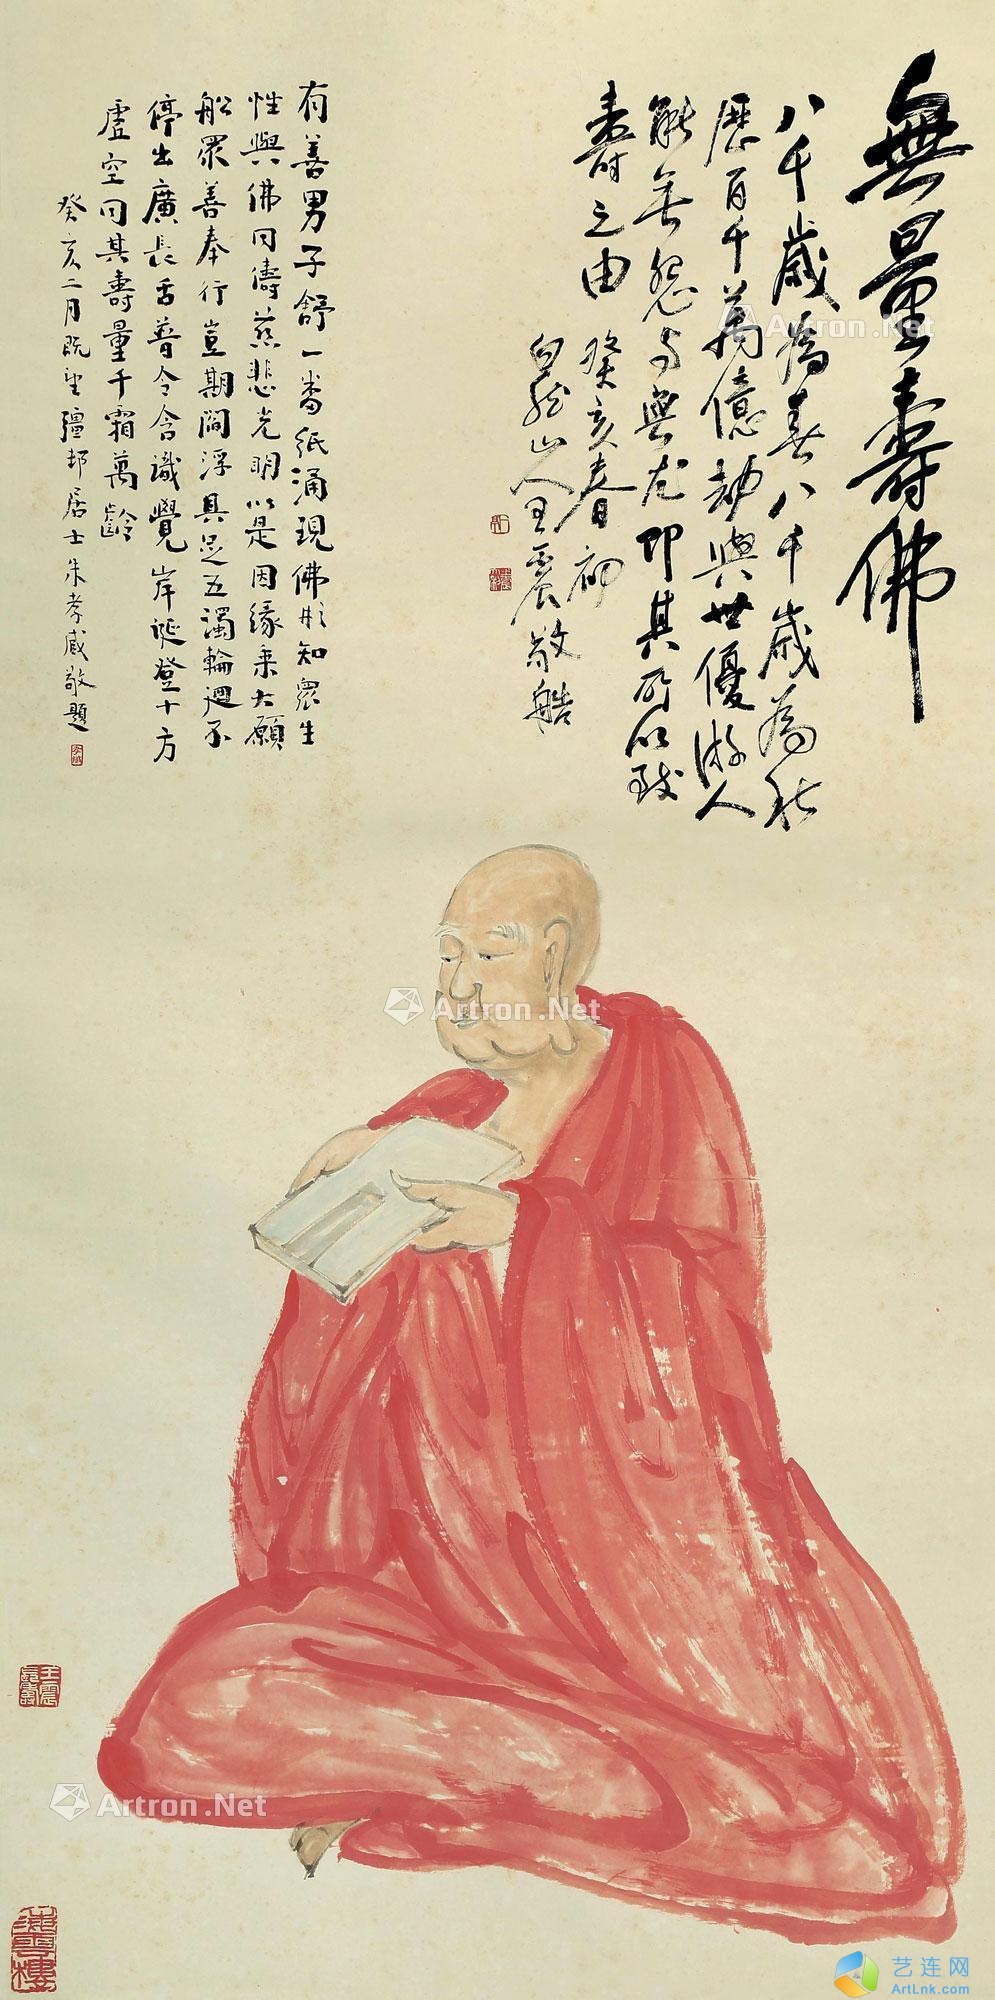 無量壽佛
八千歲為春八千歲為秋
歷百千萬億劫與世優游人
能無怨與無尤即其所以致
壽之由 癸亥春初
白龍山人王震敬
有善男子舒一番紙涌現佛形知眾生
性與佛同儔慈悲光明以是因緣乘大願
船眾善奉行豈期閻浮具足五濁輪迴不
停出廣長舌普令含識覺岸誕登十方
虛空同其壽量千霜萬齡
癸亥二月既望彊邨居士朱孝臧敬題
Artron.Net
Artron.Net
Artron.Net
Artron.Net
王震
長壽
海雲樓
艺连网
ArtLnk.com